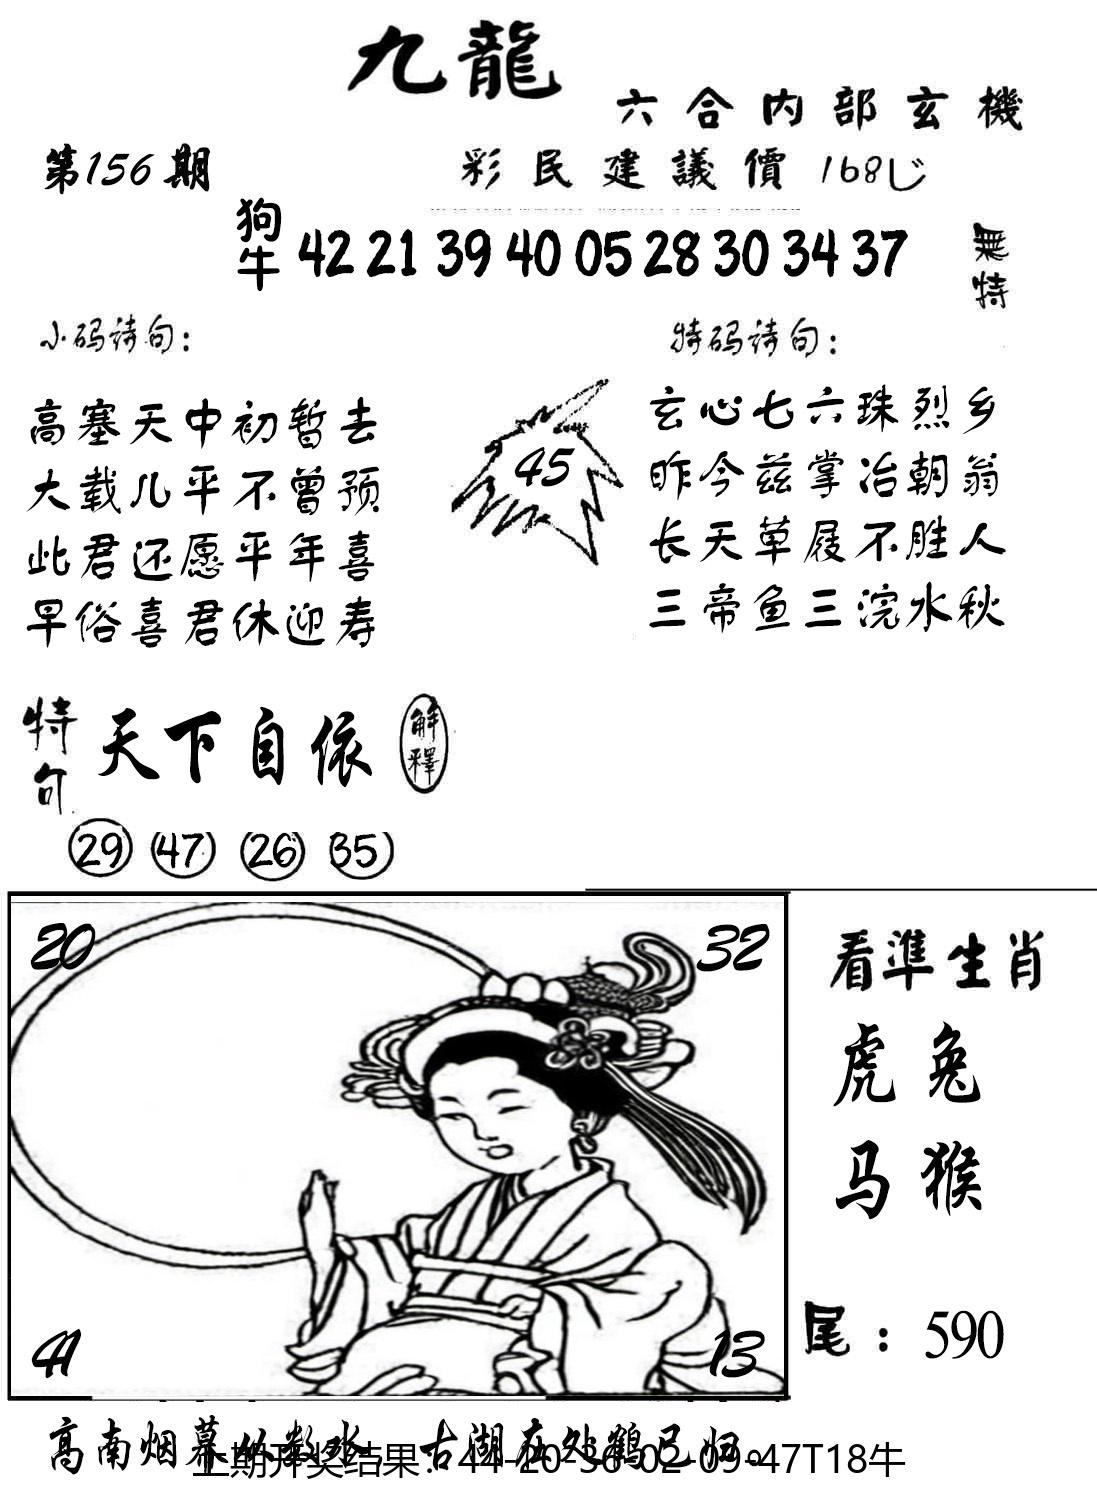 九龍
六合内部玄機
第156期
彩民建議價168
狗牛 42 21 39 40 05 28 30 34 37
無特
小码诗句：
特码诗句：
高塞天中初暂去
大载几平不曾预
此君还愿平年喜
早俗喜君休迎寿
45
玄心七六珠烈乡
昨今兹掌冶朝翁
长天草履不胜人
三帝鱼三浣水秋
特句
天下自依
解釋
29 47 26 35
20
32
41
13
看準生肖
虎兔
马猴
尾：590
高南烟幕 数水 古湖在处鹤已归。
上期开奖结果：44-20-36-02-09-47T18牛